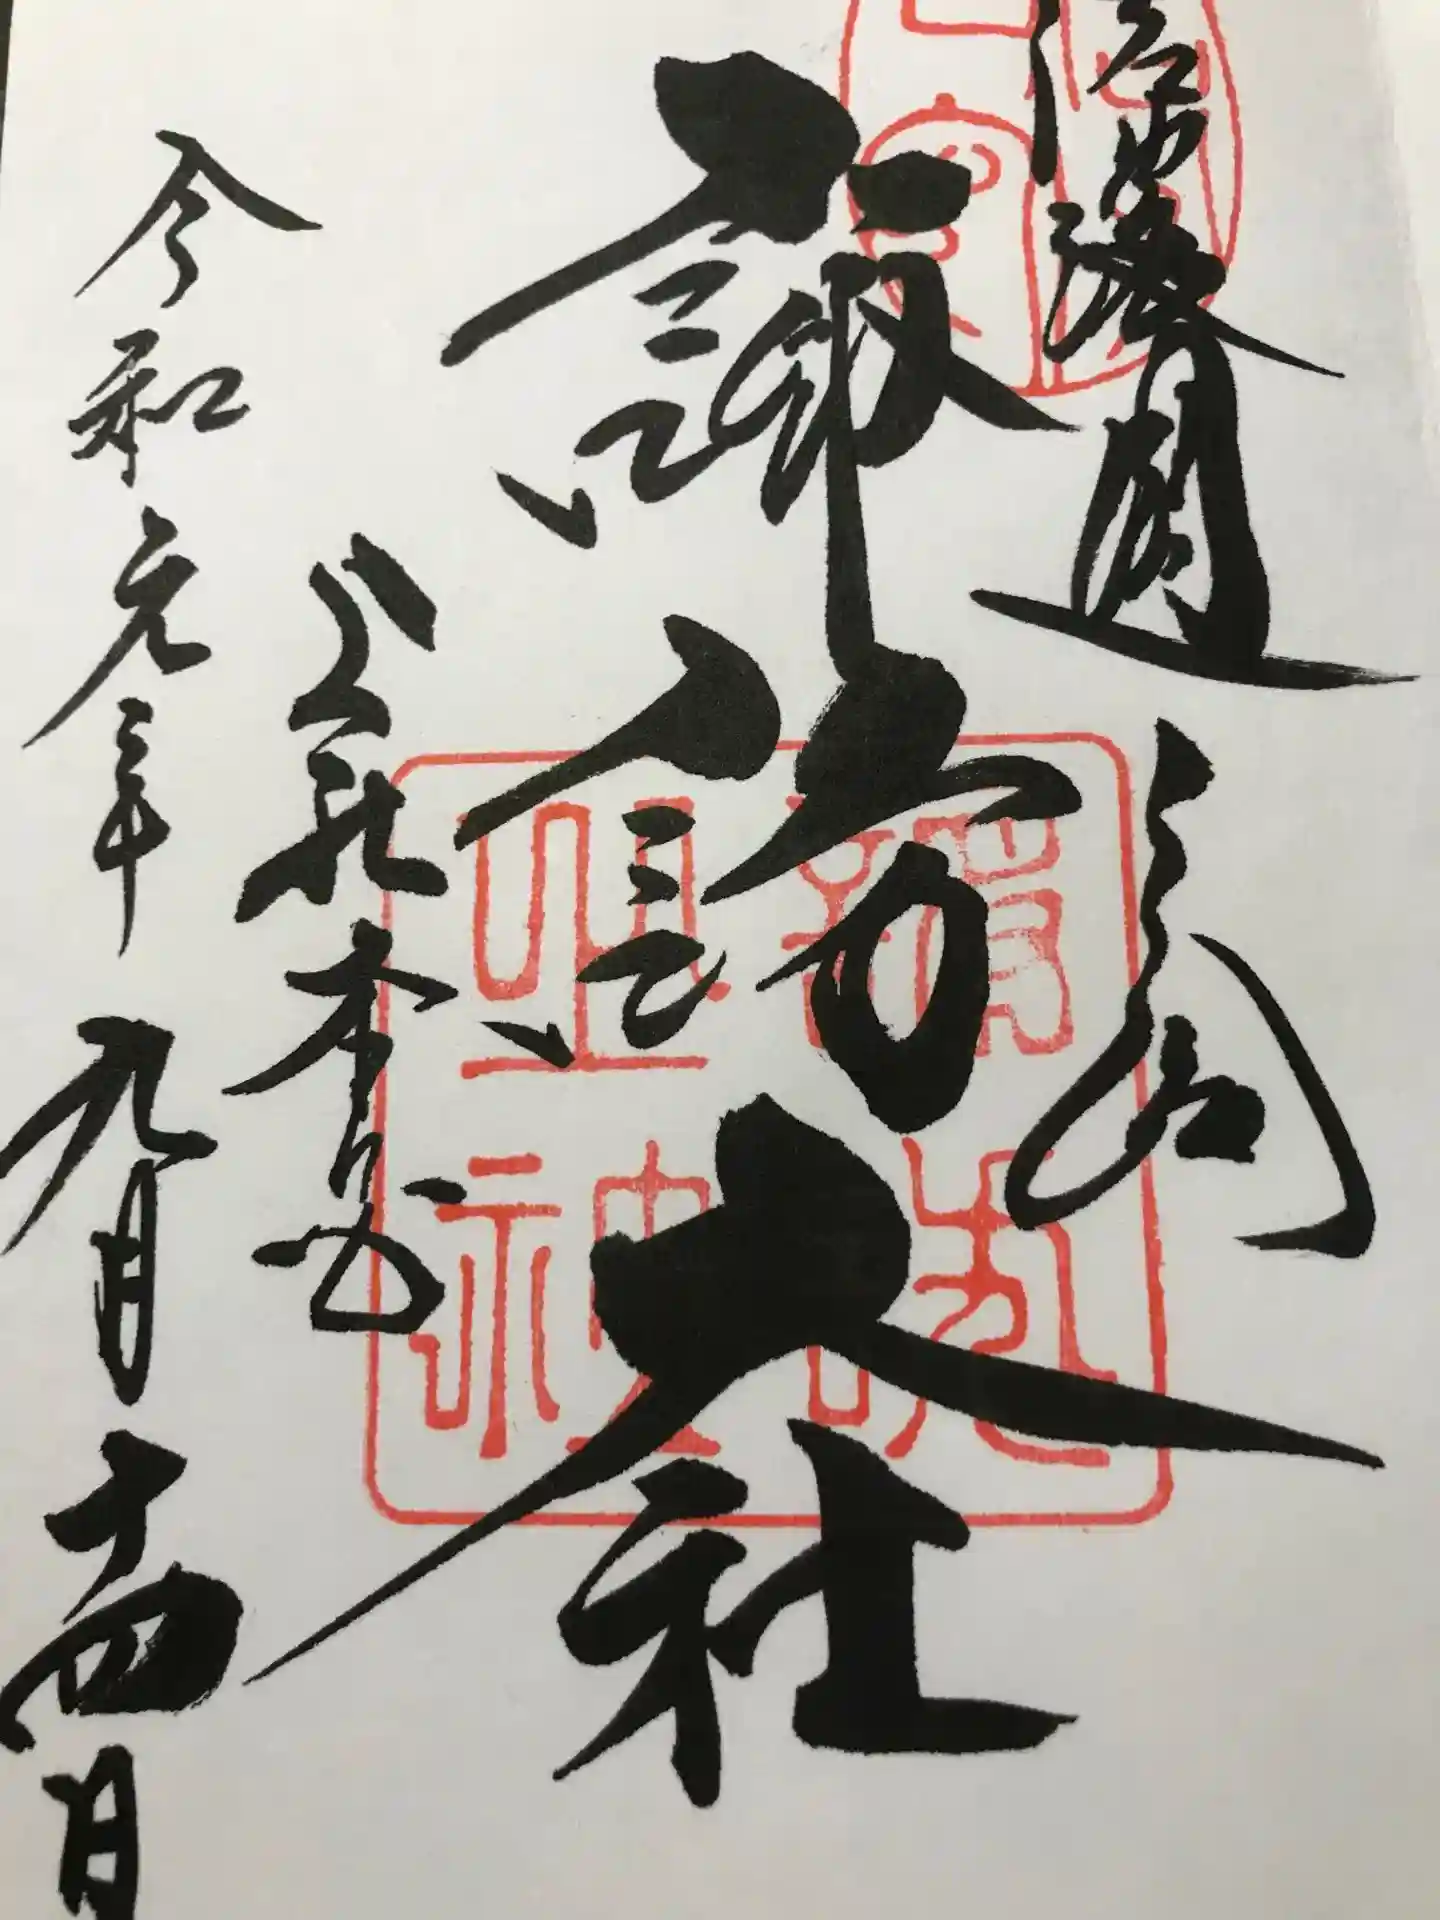 信濃國一之宮
諏訪大社
上社本宮
令和元年九月十四日